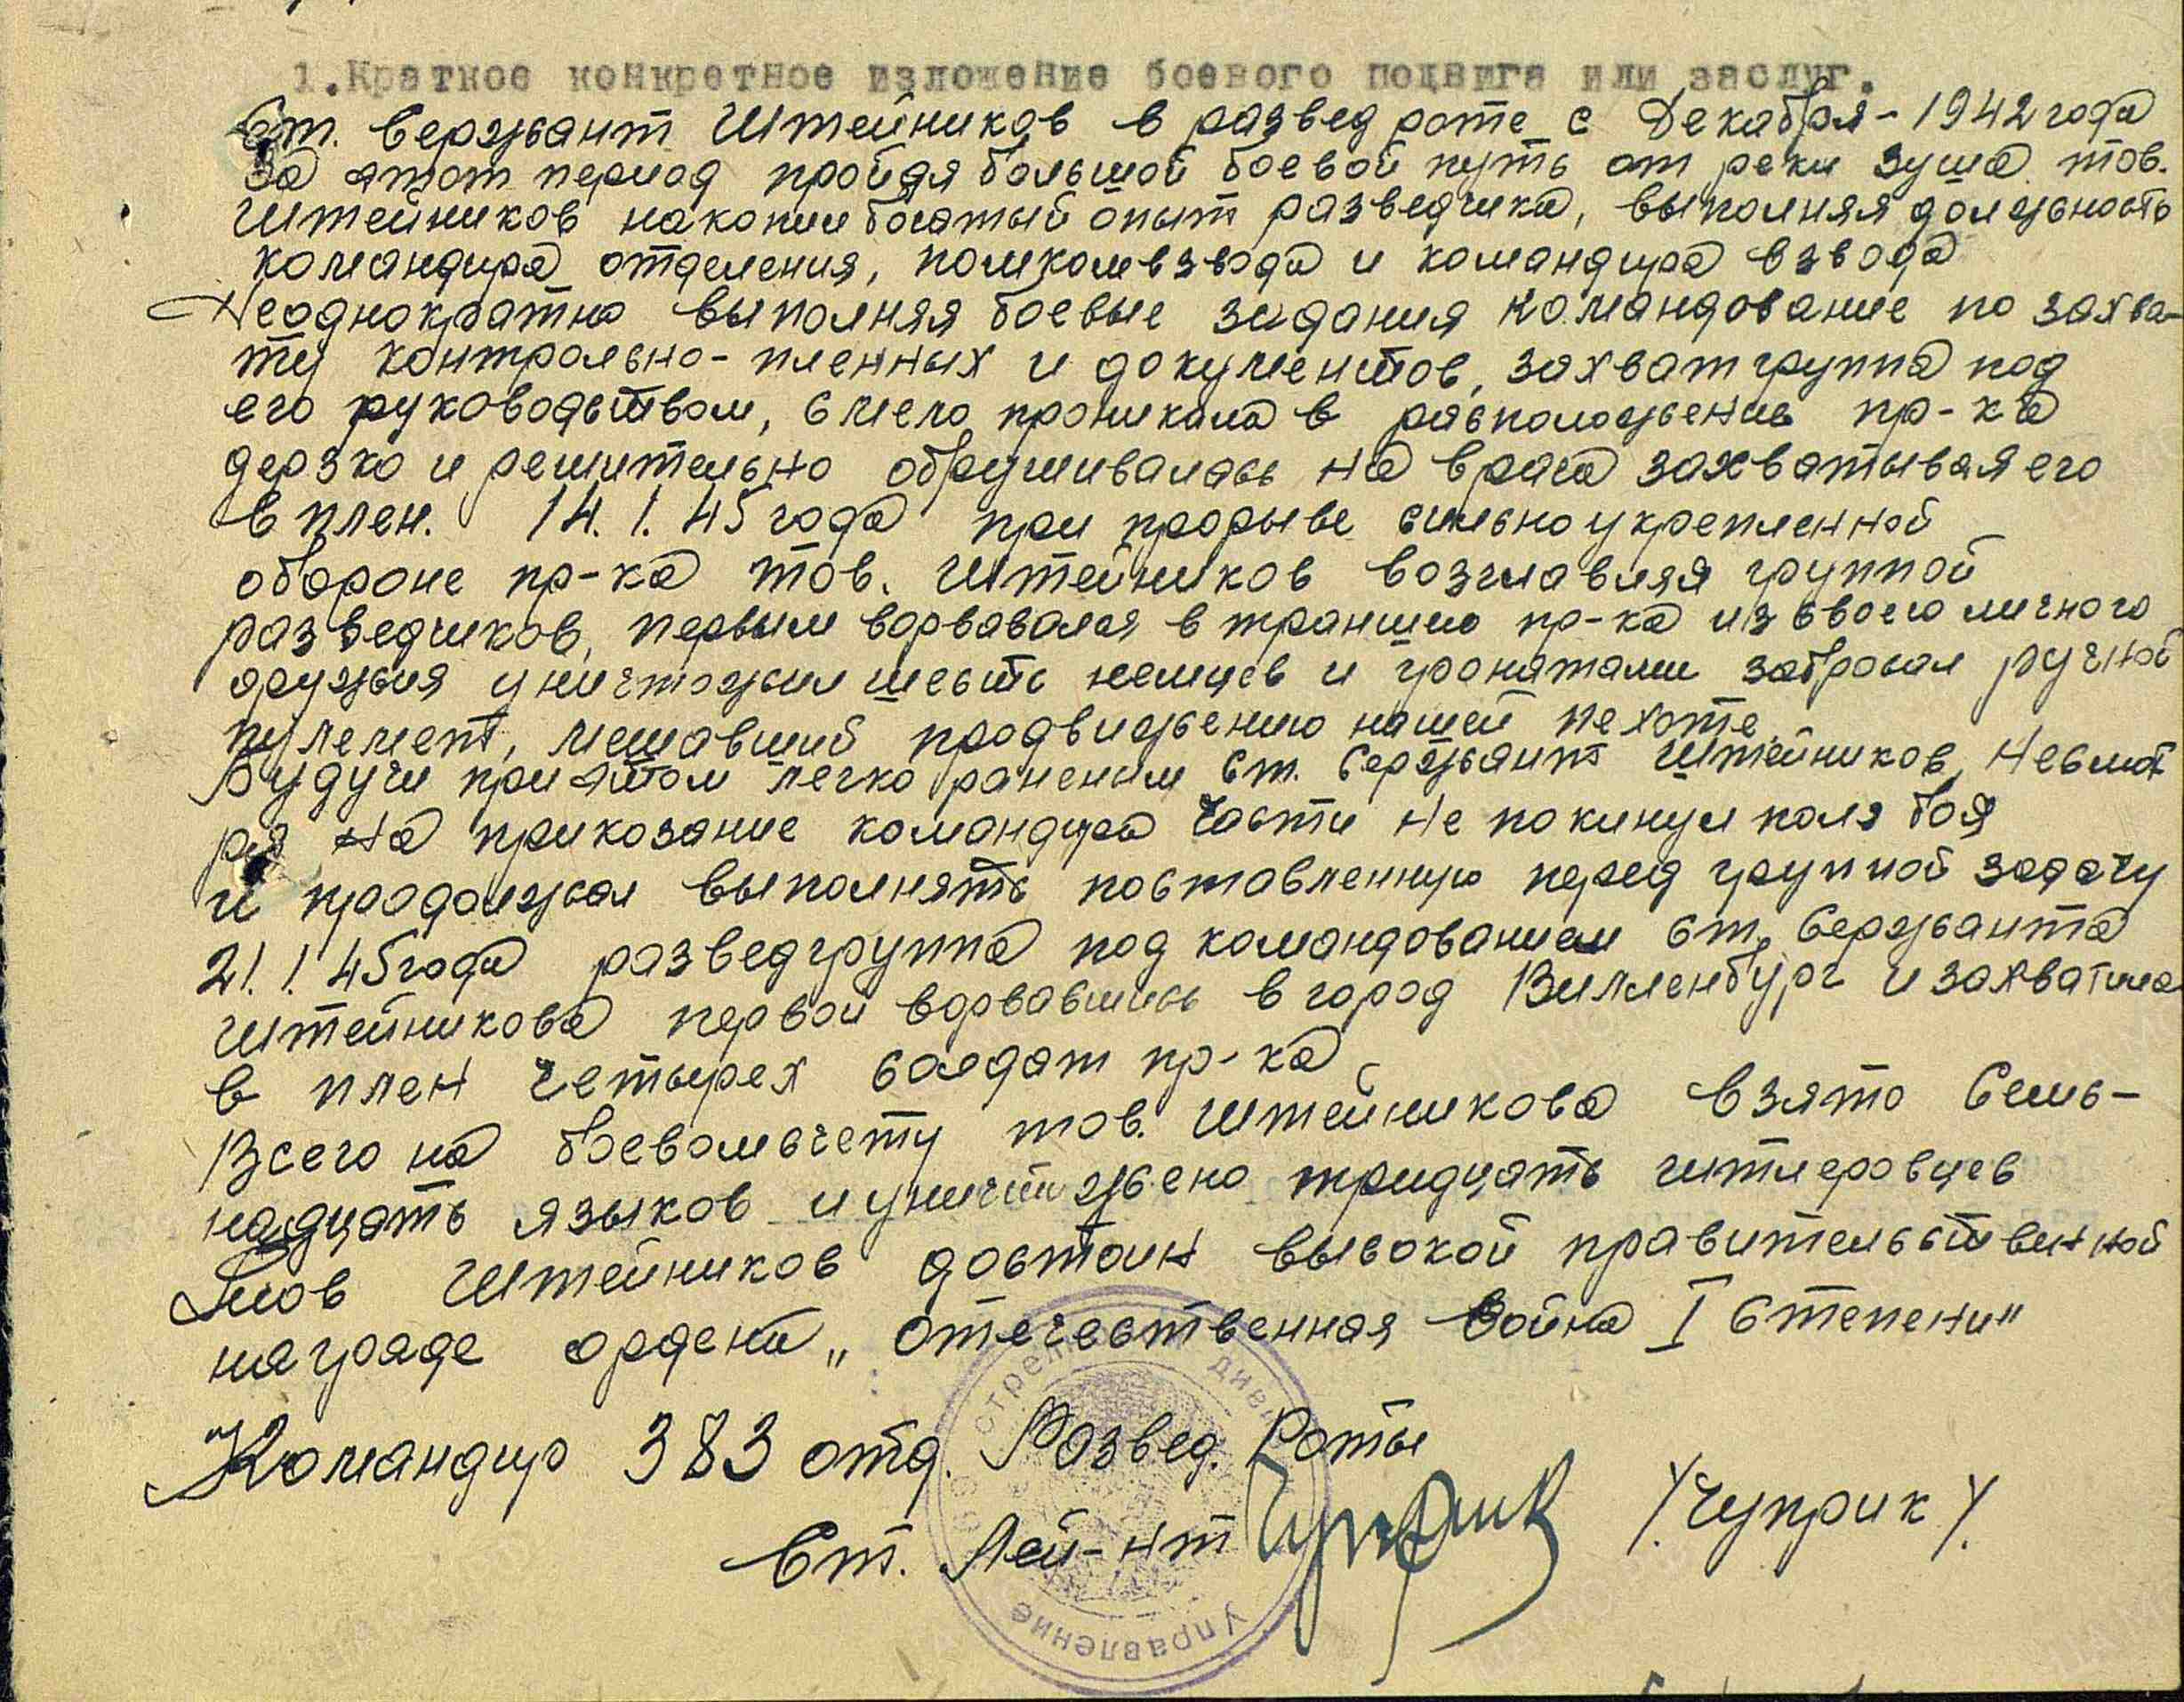 1.Краткое конкретное изложение боевого подвига или заслуг.
Ст. Сержант Штейников в развед роте с Декабря - 1942 года
За этот период пройдя большой боевой путь от реки Зуша тов.
Штейников накопил богатый опыт разведчика, выполняя должность
командира отделения, помкомвзвода и командира взвода
Неоднократно выполняя боевые задания командование по захва-
ту контрольно-пленных и документов, захватгруппа под
его руководством, смело проникала в расположение пр-ка
дерзко и решительно обрушивалась на врага захватывая его
в плен. 14.1.45 года при прорыве сильно укрепленной
обороне пр-ка тов. Штейников возглавляя группой
разведчиков, первым ворвавался в траншею пр-ка из своего личного
оружия уничтожил шесть немцев и гронатами забросал ручной
пулемент, мешавший продвижению нашей пехоте.
Будучи при этом легко раненым Ст. Сержант Штейников, Несмот
ря на приказание командира части не покинул поля боя
и продолжал выполнять поставленную перед группой задачу
21.1.45 года разведгруппа под командованием Ст. Сержанта
Штейникова первой ворвавшись в город Вилленбург и захватила
в плен четырех солдат пр-ка
Всего на боевом счету тов. Штейникова взято Семь-
надцать языков и уничтожено тридцать гитлеровцев
Тов Штейников достоин высокой правительственной
награде ордена „Отечественная Война I Степени"
Командир 383 отд. Развед. Роты
Ст. Лей-нт Чуприк /Чуприк/.
стрел диви
Управление